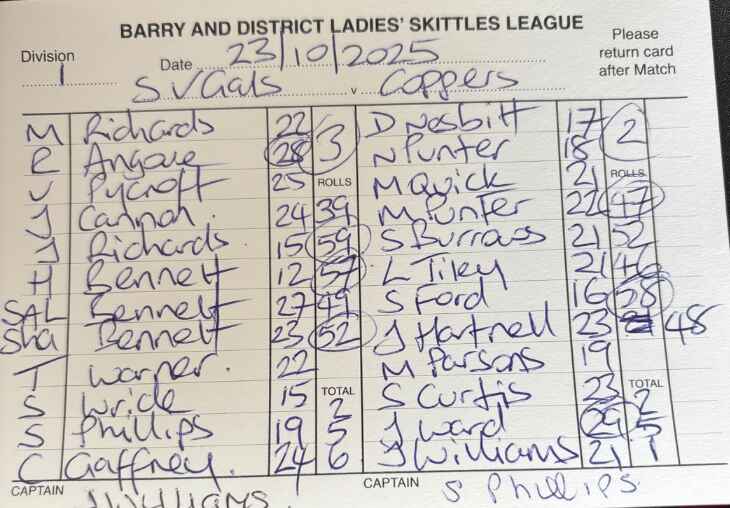 BARRY AND DISTRICT LADIES' SKITTLES LEAGUE
Please
return card
after Match
Division
1
Date 23/10/2025
S V Gals v Coppers
M Richards 22 3 D Nesbitt 17 2
R Angove 28 N Punter 18
V Pycroft 25 ROLLS M Quick 21 ROLLS
J Cannon. 24 39 M Punter 22 47
J Richards. 15 59 S Burrows 21 52
H Bennett 12 57 L Tiley 21 46
SAL Bennett 27 49 S Ford 16 58
Sha Bennett 23 52 J Hartnell 23 48
T Warner. 22 M Parsons 19
S Wride 15 TOTAL S Curtis 23 TOTAL
S Phillips 19 256 J Ward 29 251
C Gaffney. 24 J Williams 21
CAPTAIN J Williams CAPTAIN S Phillips